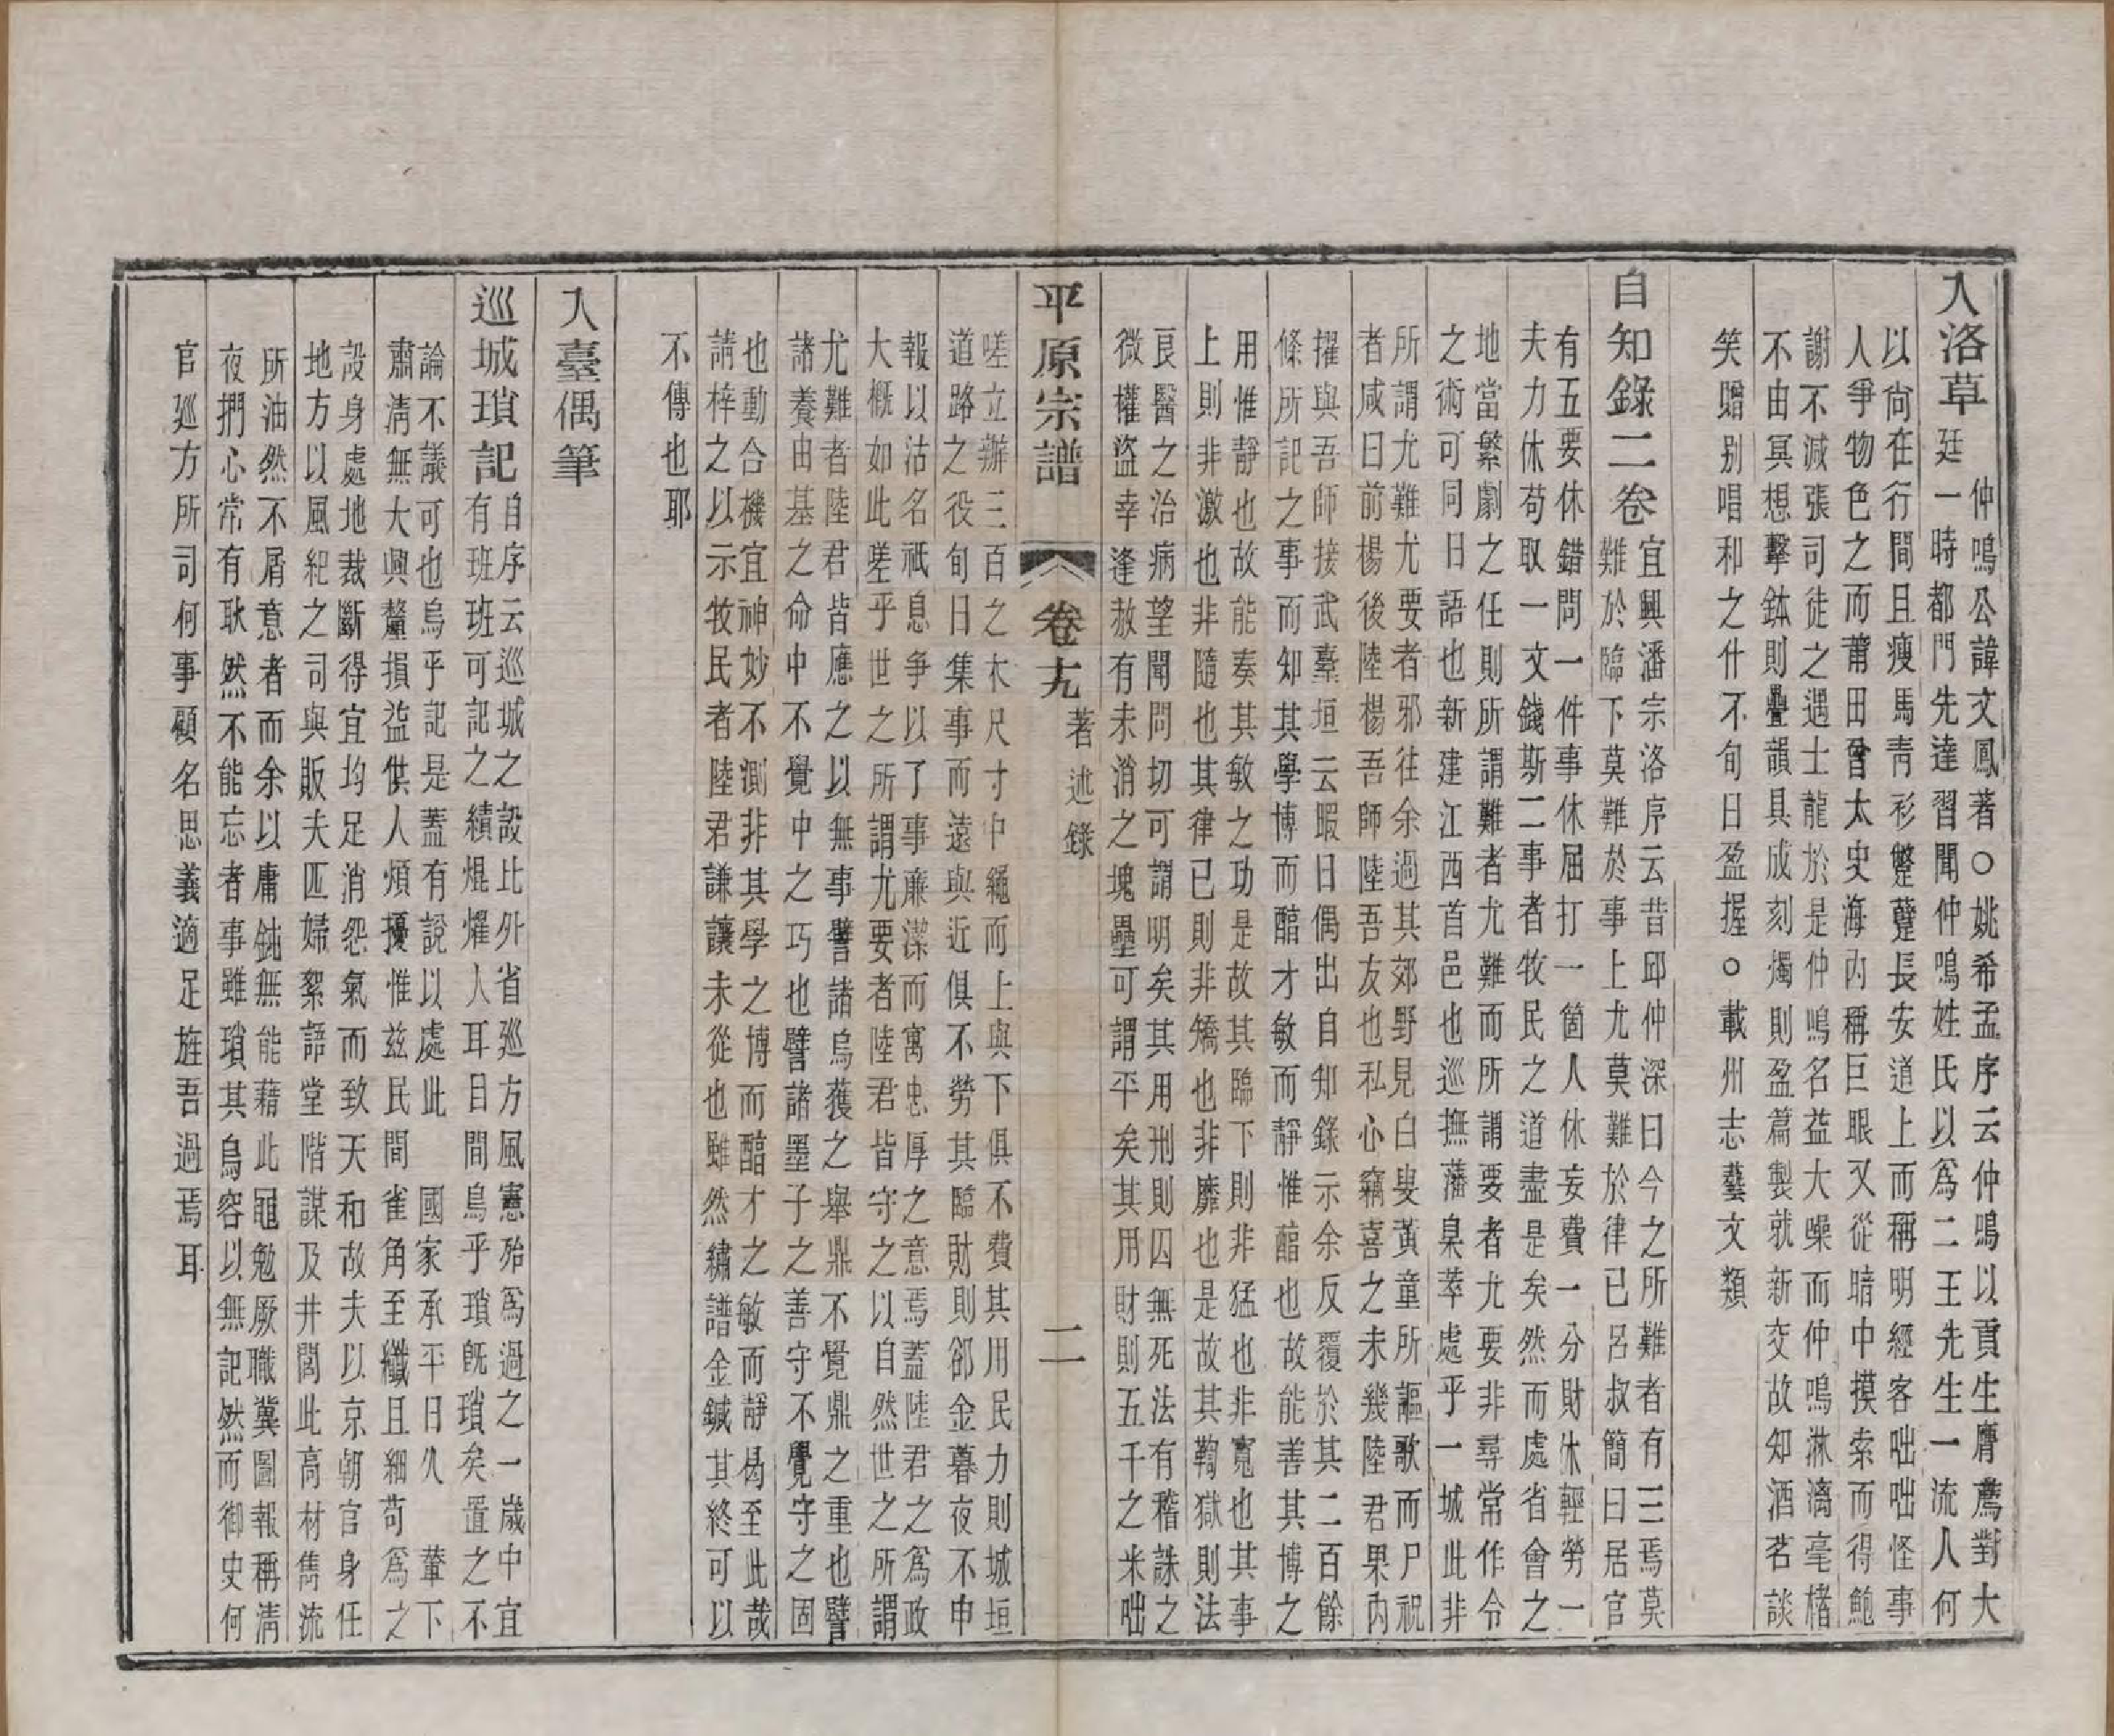 入洛草
仲鳴公諱文鳳著○姚希孟序云仲鳴以貢生膺薦對大
廷一時都門先達習聞仲鳴姓氏以爲二王先生一流人何
以尙在行間且瘦馬青衫蹩躠長安道上而稱明經客咄咄怪事
人爭物色之而莆田曾太史海內稱巨眼又從暗中摸索而得鮑
謝不減張司徒之遇士龍於是仲鳴名益大噪而仲鳴淋漓毫楮
不由冥想擊鉢則疊韻具成刻燭則盈篇製就新交故知酒茗談
笑贈別唱和之什不旬日盈握○載州志藝文類
自知錄二卷
宜興潘宗洛序云昔邱仲深曰今之所難者有三焉莫
難於臨下莫難於事上尤莫難於律已呂叔簡曰居官
有五要休錯問一件事休屈打一箇人休妄費一分財休輕勞一
夫力休苟取一文錢斯二事者牧民之道盡是矣然而處省會之
地當繁劇之任則所謂難者尤難而所謂要者尤要非尋常作令
之術可同日語也新建江西首邑也巡撫藩臬萃處乎一城此非
所謂尤難尤要者邪往余過其郊野見白叟黃童所謳歌而尸祝
者咸曰前楊後陸楊吾師陸吾友也私心竊喜之未幾陸君果內
擢與吾師接武臺垣云暇日偶出自知錄示余反覆於其二百餘
條所記之事而知其學博而醞才敏而靜惟醞也故能善其博之
用惟靜也故能奏其敏之功是故其臨下則非猛也非寬也其事
上則非激也非隨也其律已則非矯也非靡也是故其鞫獄則法
良醫之治病望聞問切可謂明矣其用刑則囚無死法有稽誅之
微權盜幸逢赦有未消之塊壘可謂平矣其用財則五千之米咄
平原宗譜 卷十九 著述錄 二
嗟立辦三百之木尺寸中繩而上與下俱不費其用民力則城垣
道路之役旬日集事而遠與近俱不勞其臨財則郤金暮夜不申
報以沽名衹息爭以了事廉潔而寓忠厚之意焉蓋陸君之爲政
大槪如此嗟乎世之所謂尤要者陸君皆守之以自然世之所謂
尤難者陸君皆應之以無事譬諸烏獲之舉鼎不覺鼎之重也譬
諸養由基之命中不覺中之巧也譬諸墨子之善守不覺守之固
也動合機宜神妙不測非其學之博而醞才之敏而靜曷至此哉
請梓之以示牧民者陸君謙讓未從也雖然繡譜金鍼其終可以
不傳也耶
入臺偶筆
巡城瑣記
自序云巡城之設比外省巡方風憲殆爲過之一歲中宜
有班班可記之績焜燿人耳目間烏乎瑣旣瑣矣置之不
論不議可也烏乎記是蓋有說以處此 國家承平日久 輦下
肅清無大興釐損益供人煩擾惟茲民間雀角至纖且細苟爲之
設身處地裁斷得宜均足消怨氣而致天和故夫以京朝官身任
地方以風紀之司與販夫匹婦絮語堂階謀及井閭此高材雋流
所油然不屑意者而余以庸鈍無能藉此黽勉厥職冀圖報稱清
夜捫心常有耿然不能忘者事雖瑣其烏容以無記然而御史何
官廵方所司何事顧名思義適足旌吾過焉耳